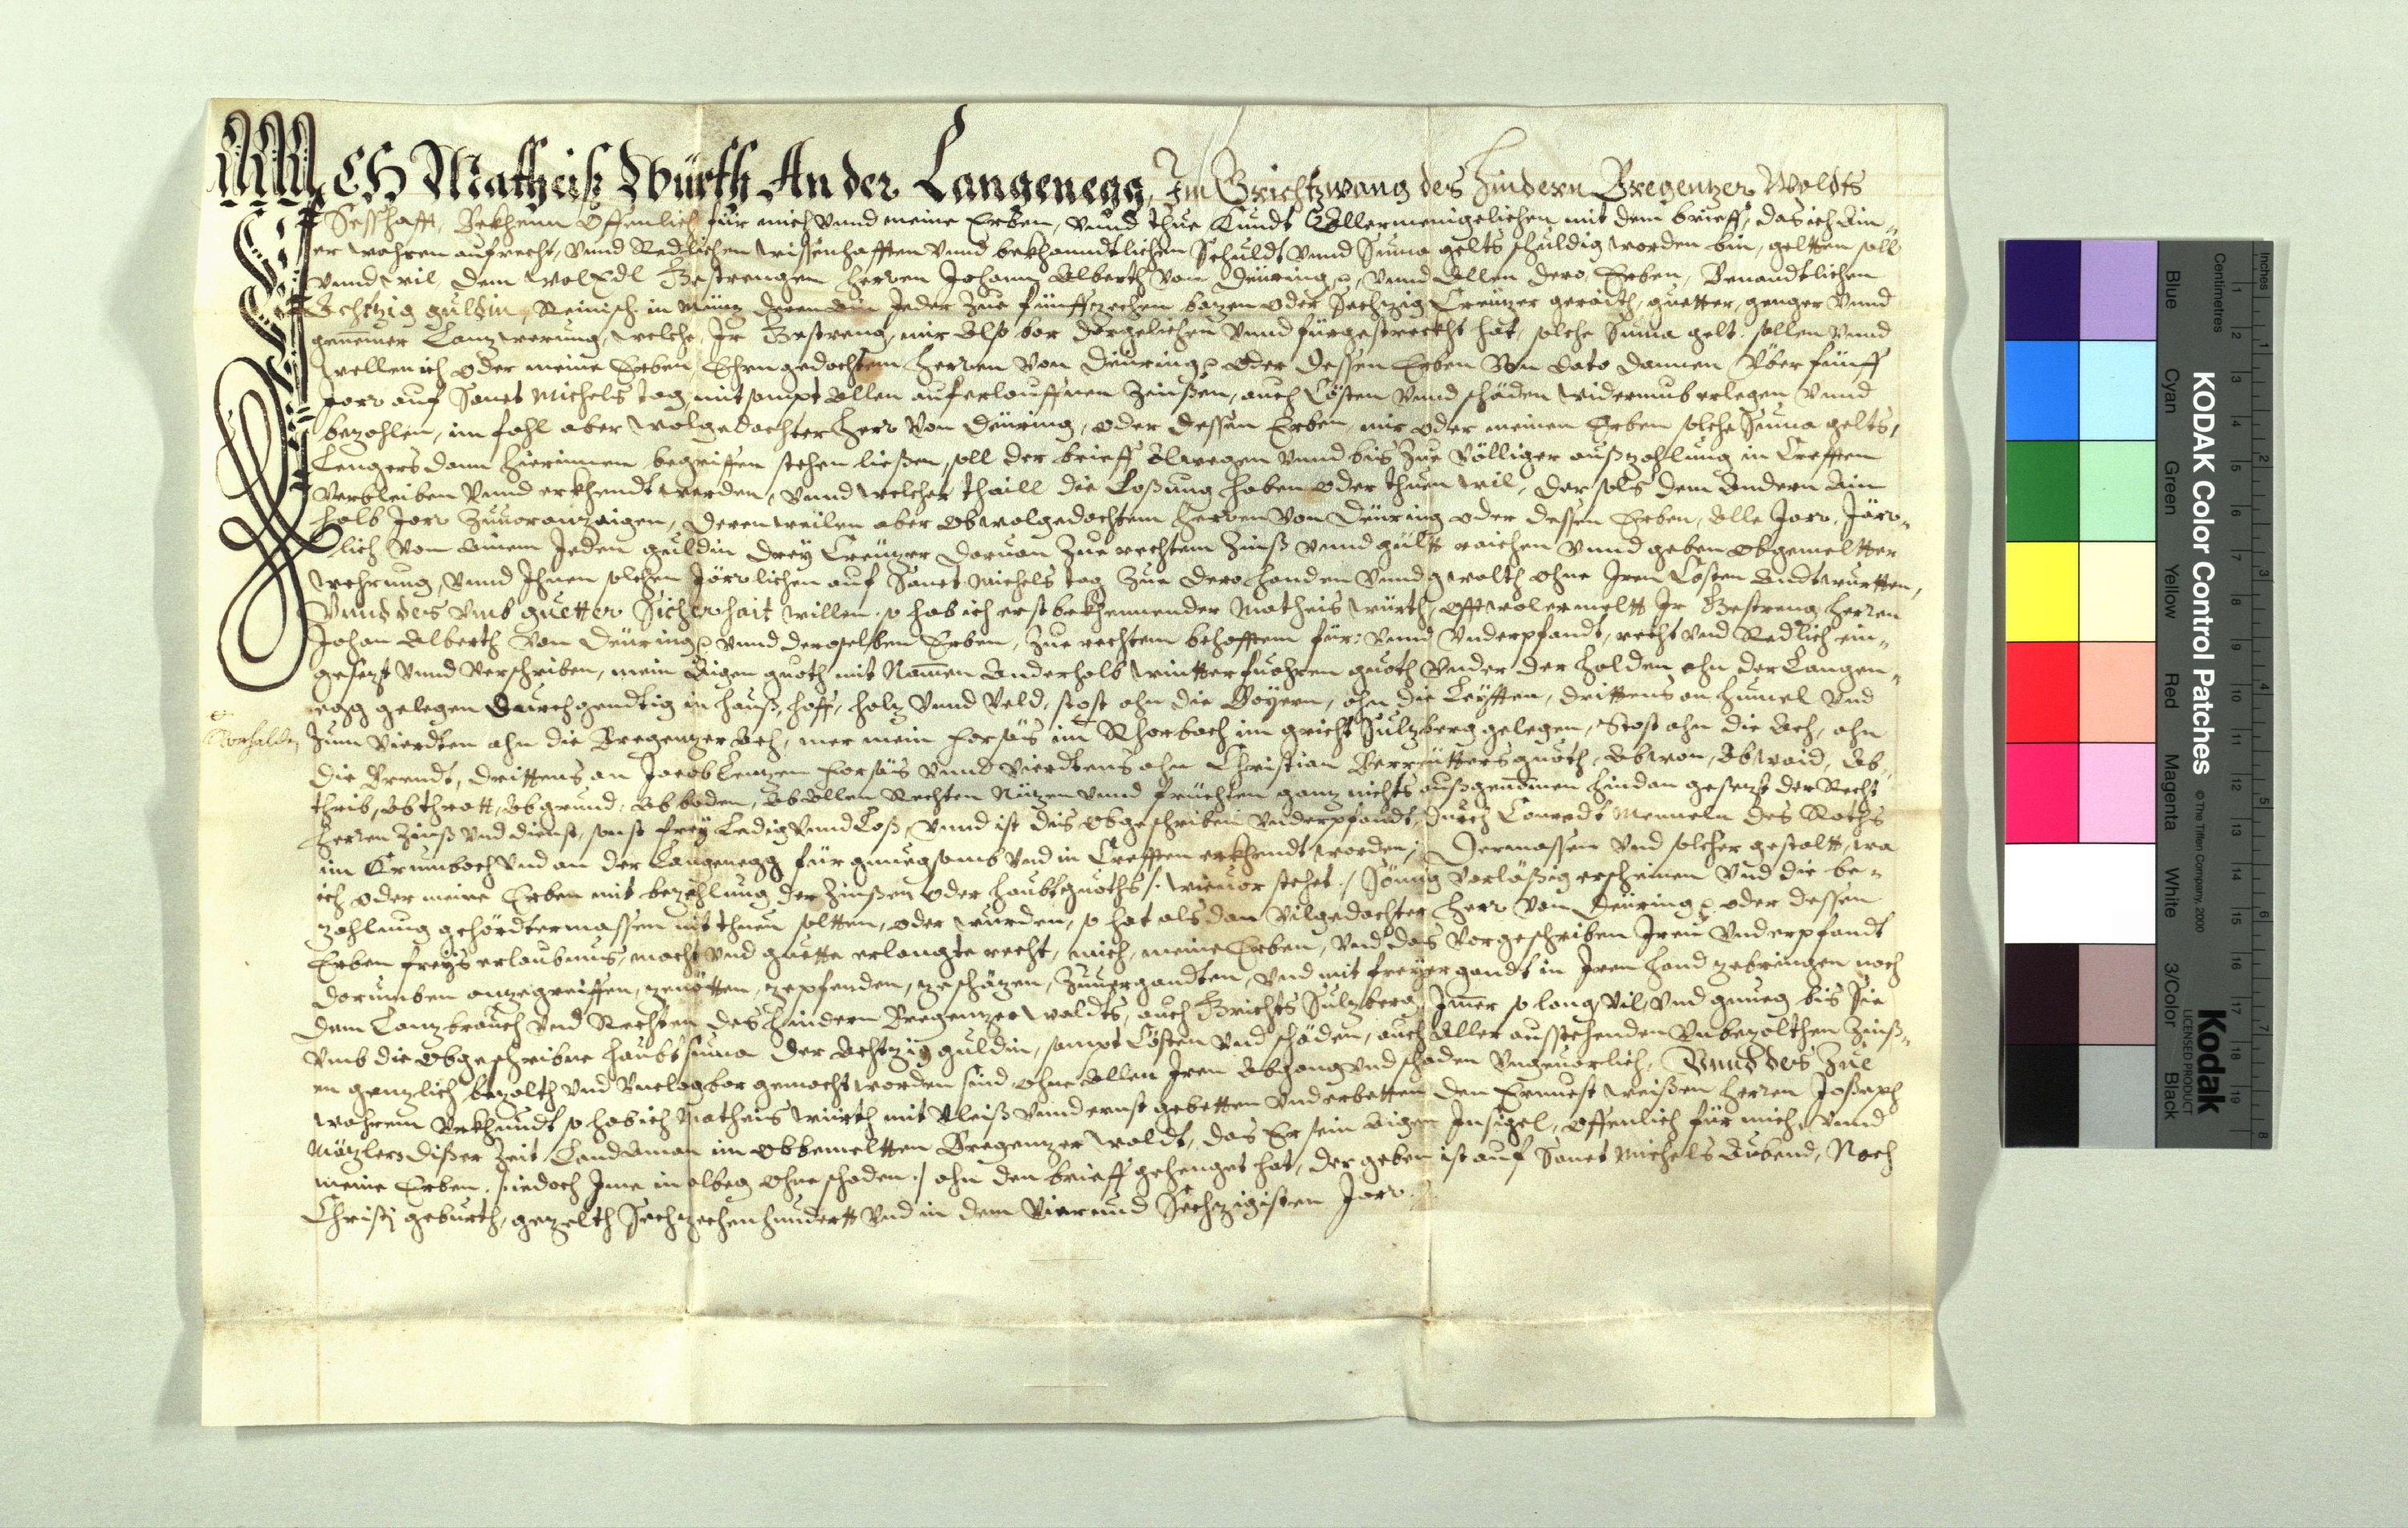 ICH Matheiß Würth An der Langenegg, Im Grichtzwang des Hindern Bregentzer Waldts
Seßhafft, Bekhenn Offenlich für mich vnnd meine Erben, vnnd thue Kundt Allermenigelichen mit dem brieff, das ich Ain¬
er wahren aufrecht, vnnd Redlichen wissenhafften vnnd bekhanndtlichen Schuldt vnnd Suma gelts schuldig worden bin, geltten soll
vnnd wil, dem WolEdl Gestrengen Herren Johann Alberth von Deüring, vnnd Allen dero Erben, Benandtlichen
Achtzig guldin, Reinisch in Münz deren Ain Jeder Zue fünffzechen bazen oder Sechzig Creüzer geraith, guetter, genger vnnd
genemer Lanzwerung, welche Jr Gestreng, mir Also bar dargelichen vnnd fürgestreckht hat, solche Suma gelt sollen vnnd
wellen ich oder meine Erben Ehrngedachtem Herren von Deüring oder dessen Erben Von dato dannen Über fünff
Jarr auf Sanct Michels tag mit sampt Allen auferlauffnen Zinßen, auch Cösten vnnd schäden widerumb erlegen vnnd
bezahlen, im fahl aber wolgedachter Herr von Deüring, oder dessen Erben mir oder meinen Erben solche Suma gelts,
Lengers dann hierinnen begriffen stehen ließen, soll der brieff Alwegen vnnd bis Zue Völliger außzahlung in Crefften
Verbleiben vnnd erkhendt werden, vnnd welcher thaill die Loßung haben oder thuen wil, der sols dem Andern Ain
halb Jarr Zuuor anzaigen, derenweilen aber obwolgedachtem Herren von Deüring oder dessen Erben, Alle Jarr, Järr¬
lich von Ainem Jeden guldin drey Creüzer daruon Zue rechtem Zinß vnnd gültt raichen vnnd geben obgemeltter
wehrung, vnnd Ihnen solchen Järrlichen auf Sanct Michels tag Zue dero handen vnnd gwalth ohne Jren Cösten Andtwurtten,
Vnnd des vmb guetter Sicherhait willen, so hab ich erstbekhennender Matheis Würth, offtwolermeltt Jr Gestreng Herren
Johan Alberth von Deüring vnnd deroselben Erben, Zue rechtem behafftem für: vnnd vnderpfandt, recht vnd Redlich ein¬
gesezt vnnd verschriben, mein Aigen guoth mit Namen Anderhalb wintterfuohren guoth vnder der Halden ahn der Langen¬
egg gelegen durchgendtig in hauß, hoff, holz vnnd veld, stost ahn die Bäyern, ahn die Leytten, drittens an himel vnd
Zum vierdten ahn die Bregenzer Ach, mer mein Forsäs im Rhorbach im gricht Sulzberg gelegen, Stost ahn die Ach, ahn
die Brendt, drittens an Jacob Lenzen Forsäs vnnd vierdtens ahn Christian Berreütters guoth, Ab won, Ab waid, Ab¬
thrib, Ab thratt, Ab grund, Ab boden, Ab Allen Rechten Nuzen vnnd früchten ganz nichts außgenomen hindan gesezt der Recht
Herren Zinß vnd dienst, sonst frey Ledig vnnd Loß, vnnd ist dis obgeschriben vnderpfandt, durch Conradt Menneln des Raths
im Crumbach vnd an der Langenegg für gnuegsamb vnd in Crefften erkhendt worden, Dermassen vnd solcher gestaltt, wa
ich oder meine Erben mit bezahlung der Zinßen oder haubtguoths /: wieuor stehet :/ Söumig varläßig erscheinen vnd die be¬
zahlung gehördtermassen nit thuen soltten, oder wurden, so hat als dan vilgedachter Herr von Deüring oder dessen
Erben freys erlaubnus, macht vnd guette erlangte recht, mich, meine Erben, vnd das vorgeschriben Jren vnderpfandt
darumben anzegreiffen, zenötten, zepfenden, zeschäzen, Zuuergandten, vnd mit freyer gandt in Jren hand zebringen nach
dem Lanzbrauch vnd Rechten des Hindern Bregenzer Waldts, auch Grichts Sulzberg, Jmer so lang, vil, vnd gnueg bis Sie
vmb die obgeschribne haubtsuma der Achtzig guldin, sampt Cösten vnd schäden, auch Aller ausstehenden vnbezalthen Zinß¬
en genzlich bezalth vnd vnclagbar gemacht worden sind, ohne Allen Jren Abgang vnd schaden vngeuarlich, Vnnd des Zue
wahrem Vrkhundt so hab ich Matheis Würth mit vleiß vnnd ernst gebetten vnd erbetten den Ernuest weißen Herren Joßeph
Mäzler dißer Zeit LandAman im obbemeltten Bregenzer Waldt, das Er sein Aigen Insigel, offenlich für mich, vnnd
meine Erben /: iedoch Jme in albeg ohne schaden :/ ahn den brieff gehenget hat, der geben ist auf Sanct Michels Aubend, Nach
Christj geburth, gezelth Sechzechenhundertt vnd in dem Vierund Sechzigisten Jarr.
KODAK Color Control Patches
© The Tiffen Company, 2000
Kodak
LICENSED PRODUCT
Blue Cyan Green Yellow Red Magenta White 3/Color Black
Centimetres
Inches
1 2 3 4 5 6 7 8 9 10 11 12 13 14 15 16 17 18 19
1 2 3 4 5 6 7 8